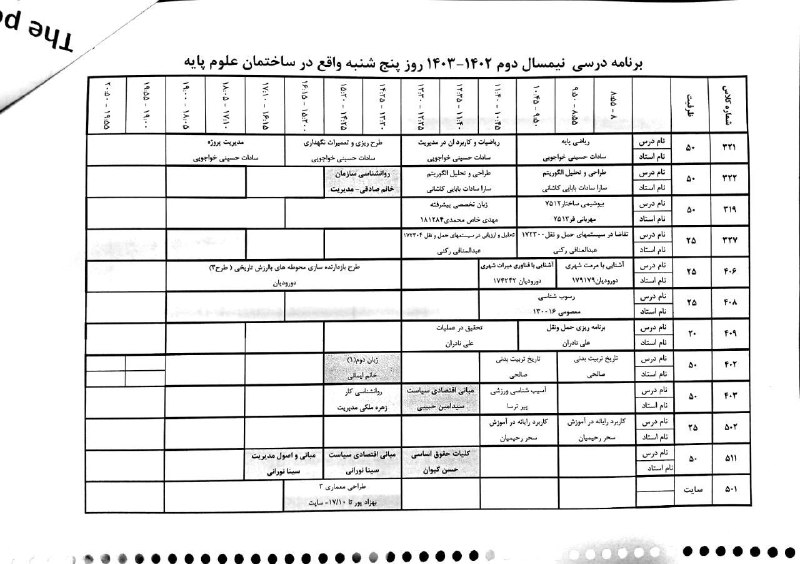 The po
برنامه درسی نیمسال دوم ۱۴۰۲-۱۴۰۳ روز پنج شنبه واقع در ساختمان علوم پایه
شماره کلاس ظرفیت ۸ - ۸:۵۵ ۸:۵۵ - ۹:۵۰ ۹:۵۰ - ۱۰:۴۵ ۱۰:۴۵ - ۱۱:۴۰ ۱۱:۴۰ - ۱۲:۳۵ ۱۲:۳۵ - ۱۳:۳۰ ۱۳:۳۰ - ۱۴:۲۵ ۱۴:۲۵ - ۱۵:۲۰ ۱۵:۲۰ - ۱۶:۱۵ ۱۶:۱۵ - ۱۷:۱۰ ۱۷:۱۰ - ۱۸:۰۵ ۱۸:۰۵ - ۱۹:۰۰ ۱۹:۰۰ - ۱۹:۵۵ ۱۹:۵۵ - ۲۰:۵۰
۳۲۱ ۵۰ نام درس ریاضی پایه ریاضیات و کاربرد ان در مدیریت طرح ریزی و تعمیرات نگهداری مدیریت پروژه
نام استاد سادات حسینی خواجویی سادات حسینی خواجویی سادات حسینی خواجویی سادات حسینی خواجویی
۳۲۲ ۵۰ نام درس طراحی و تحلیل الگوریتم طراحی و تحلیل الگوریتم روانشناسی سازمان
نام استاد سارا سادات بابایی کاشانی سارا سادات بابایی کاشانی خانم صادقی- مدیریت
۳۱۹ ۵۰ نام درس بیوشیمی ساختار ۷۵۱۲ زبان تخصصی پیشرفته
نام استاد مهربانی فر ۷۵۱۲ مهدی خاص محمدی ۱۸۱۲۸۴
۳۳۷ ۲۵ نام درس تقاضا در سیستمهای حمل و نقل ۱۷۲۳۰۰ تحلیل و ارزیابی در سیستمهای حمل و نقل ۱۷۲۳۰۴
نام استاد عبدالمنافی رکنی عبدالمنافی رکنی
۴۰۶ ۲۵ نام درس آشنایی با مرمت شهری آشنایی با فناوری میراث شهری طرح بازدارنده سازی محوطه های باارزش تاریخی ( طرح۳)
نام استاد دورودیان ۱۷۹۱۷۹ دورودیان ۱۷۴۲۴۲ دورودیان
۴۰۸ ۲۵ نام درس رسوب شناسی
نام استاد معصومی ۱۳۰۰۱۶
۴۰۹ ۳۰ نام درس برنامه ریزی حمل ونقل تحقیق در عملیات
نام استاد علی نادران علی نادران
۴۰۲ ۵۰ نام درس تاریخ تربیت بدنی تاریخ تربیت بدنی زبان دوم(۱)
نام استاد صالحی صالحی خانم ایمانی
۴۰۳ ۵۰ نام درس آسیب شناسی ورزشی مبانی اقتصادی سیاست روانشناسی کار
نام استاد پیر ترسا سیدامین حبیبی زهره ملکی مدیریت
۵۰۲ ۲۵ نام درس کاربرد رایانه در آموزش کاربرد رایانه در آموزش
نام استاد سحر رحیمیان سحر رحیمیان
۵۱۱ ۵۰ نام درس کلیات حقوق اساسی مبانی اقتصادی سیاست مبانی و اصول مدیریت
نام استاد حسن کیوان سینا نورانی سینا نورانی
۵۰۱ سایت نام درس طراحی معماری ۳
نام استاد بهزاد پور تا ۱۷/۱۰- سایت